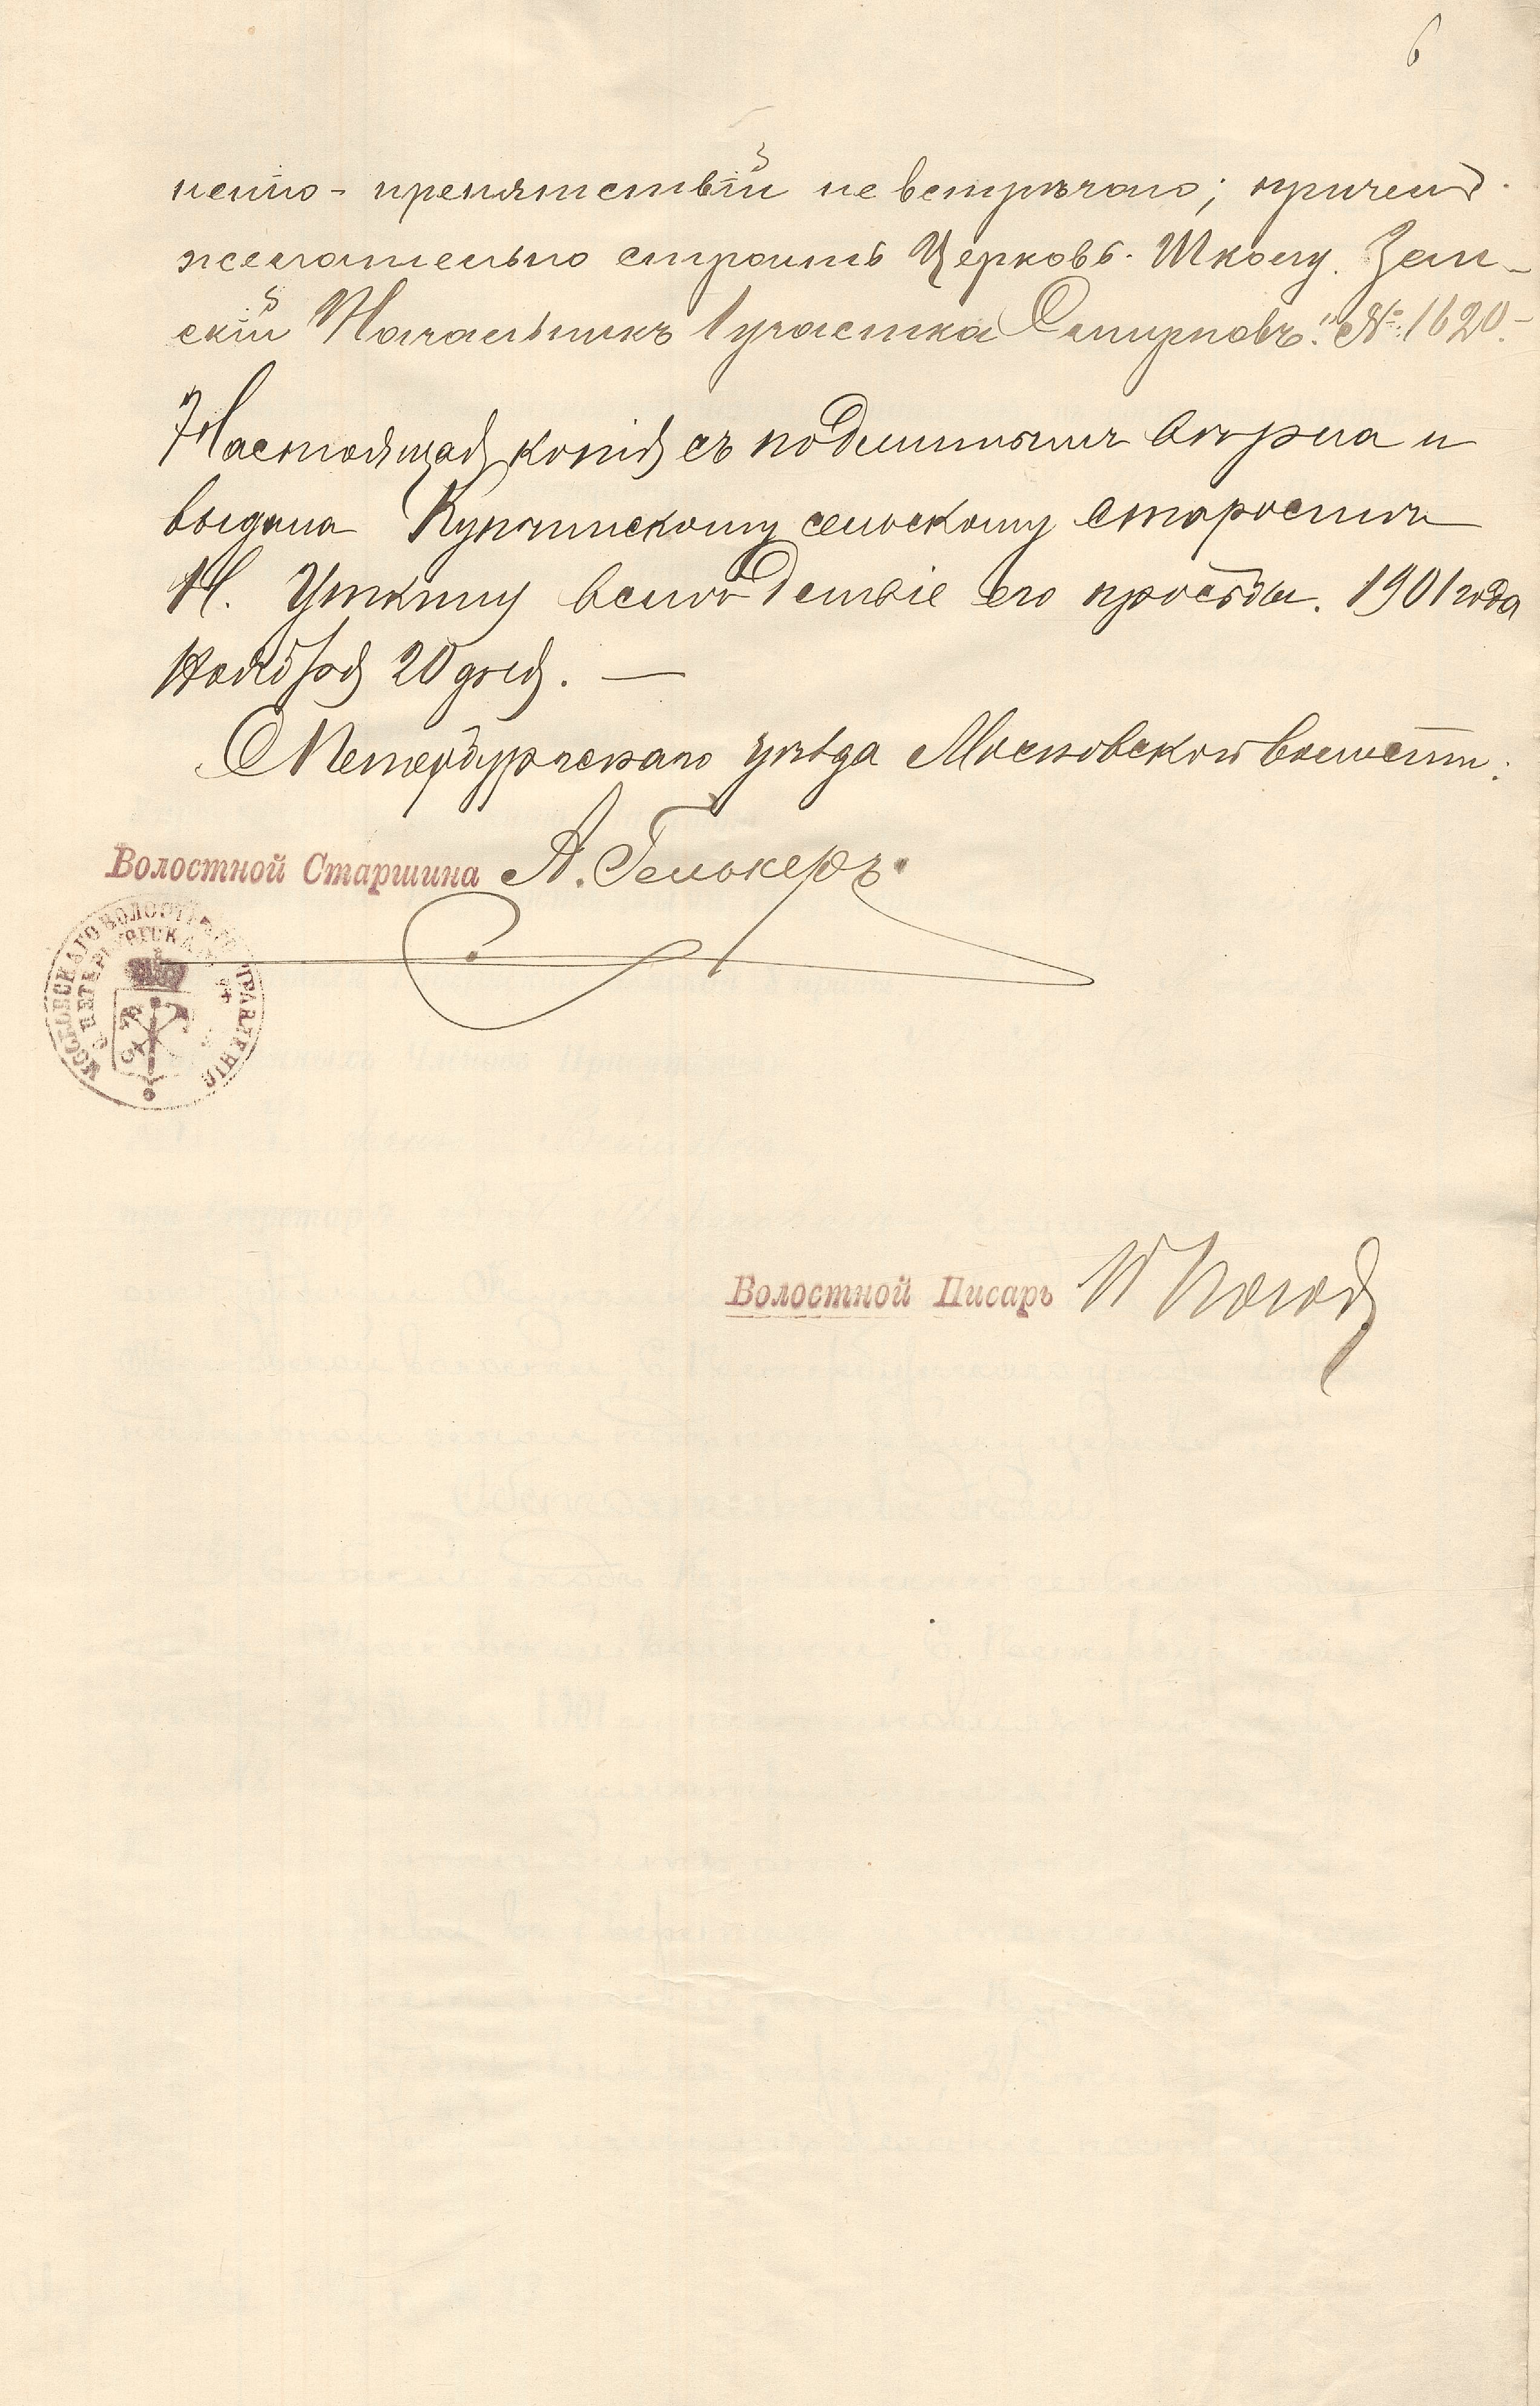 6
неніго - препятствій не встрѣчаю; причемъ
желательно строить Церковь-Школу. Зем-
скій Начальникъ 1 участка Смирновъ." № 1620.-
Настоящая копія съ подлиннымъ вѣрна и
выдана Купчинскому сельскому старостѣ
Н. Уткину вслѣдствіе его просьбы. 1901 года
Ноября 20 дня. —
С Петербургскаго уѣзда Московской волости.
Волостной Старшина А. Гелькеръ
МОСКОВСКАГО ВОЛОСТНОГО ПРАВЛЕНІЯ
С ПЕТЕРБУРГСКАГО
Волостной Писарь